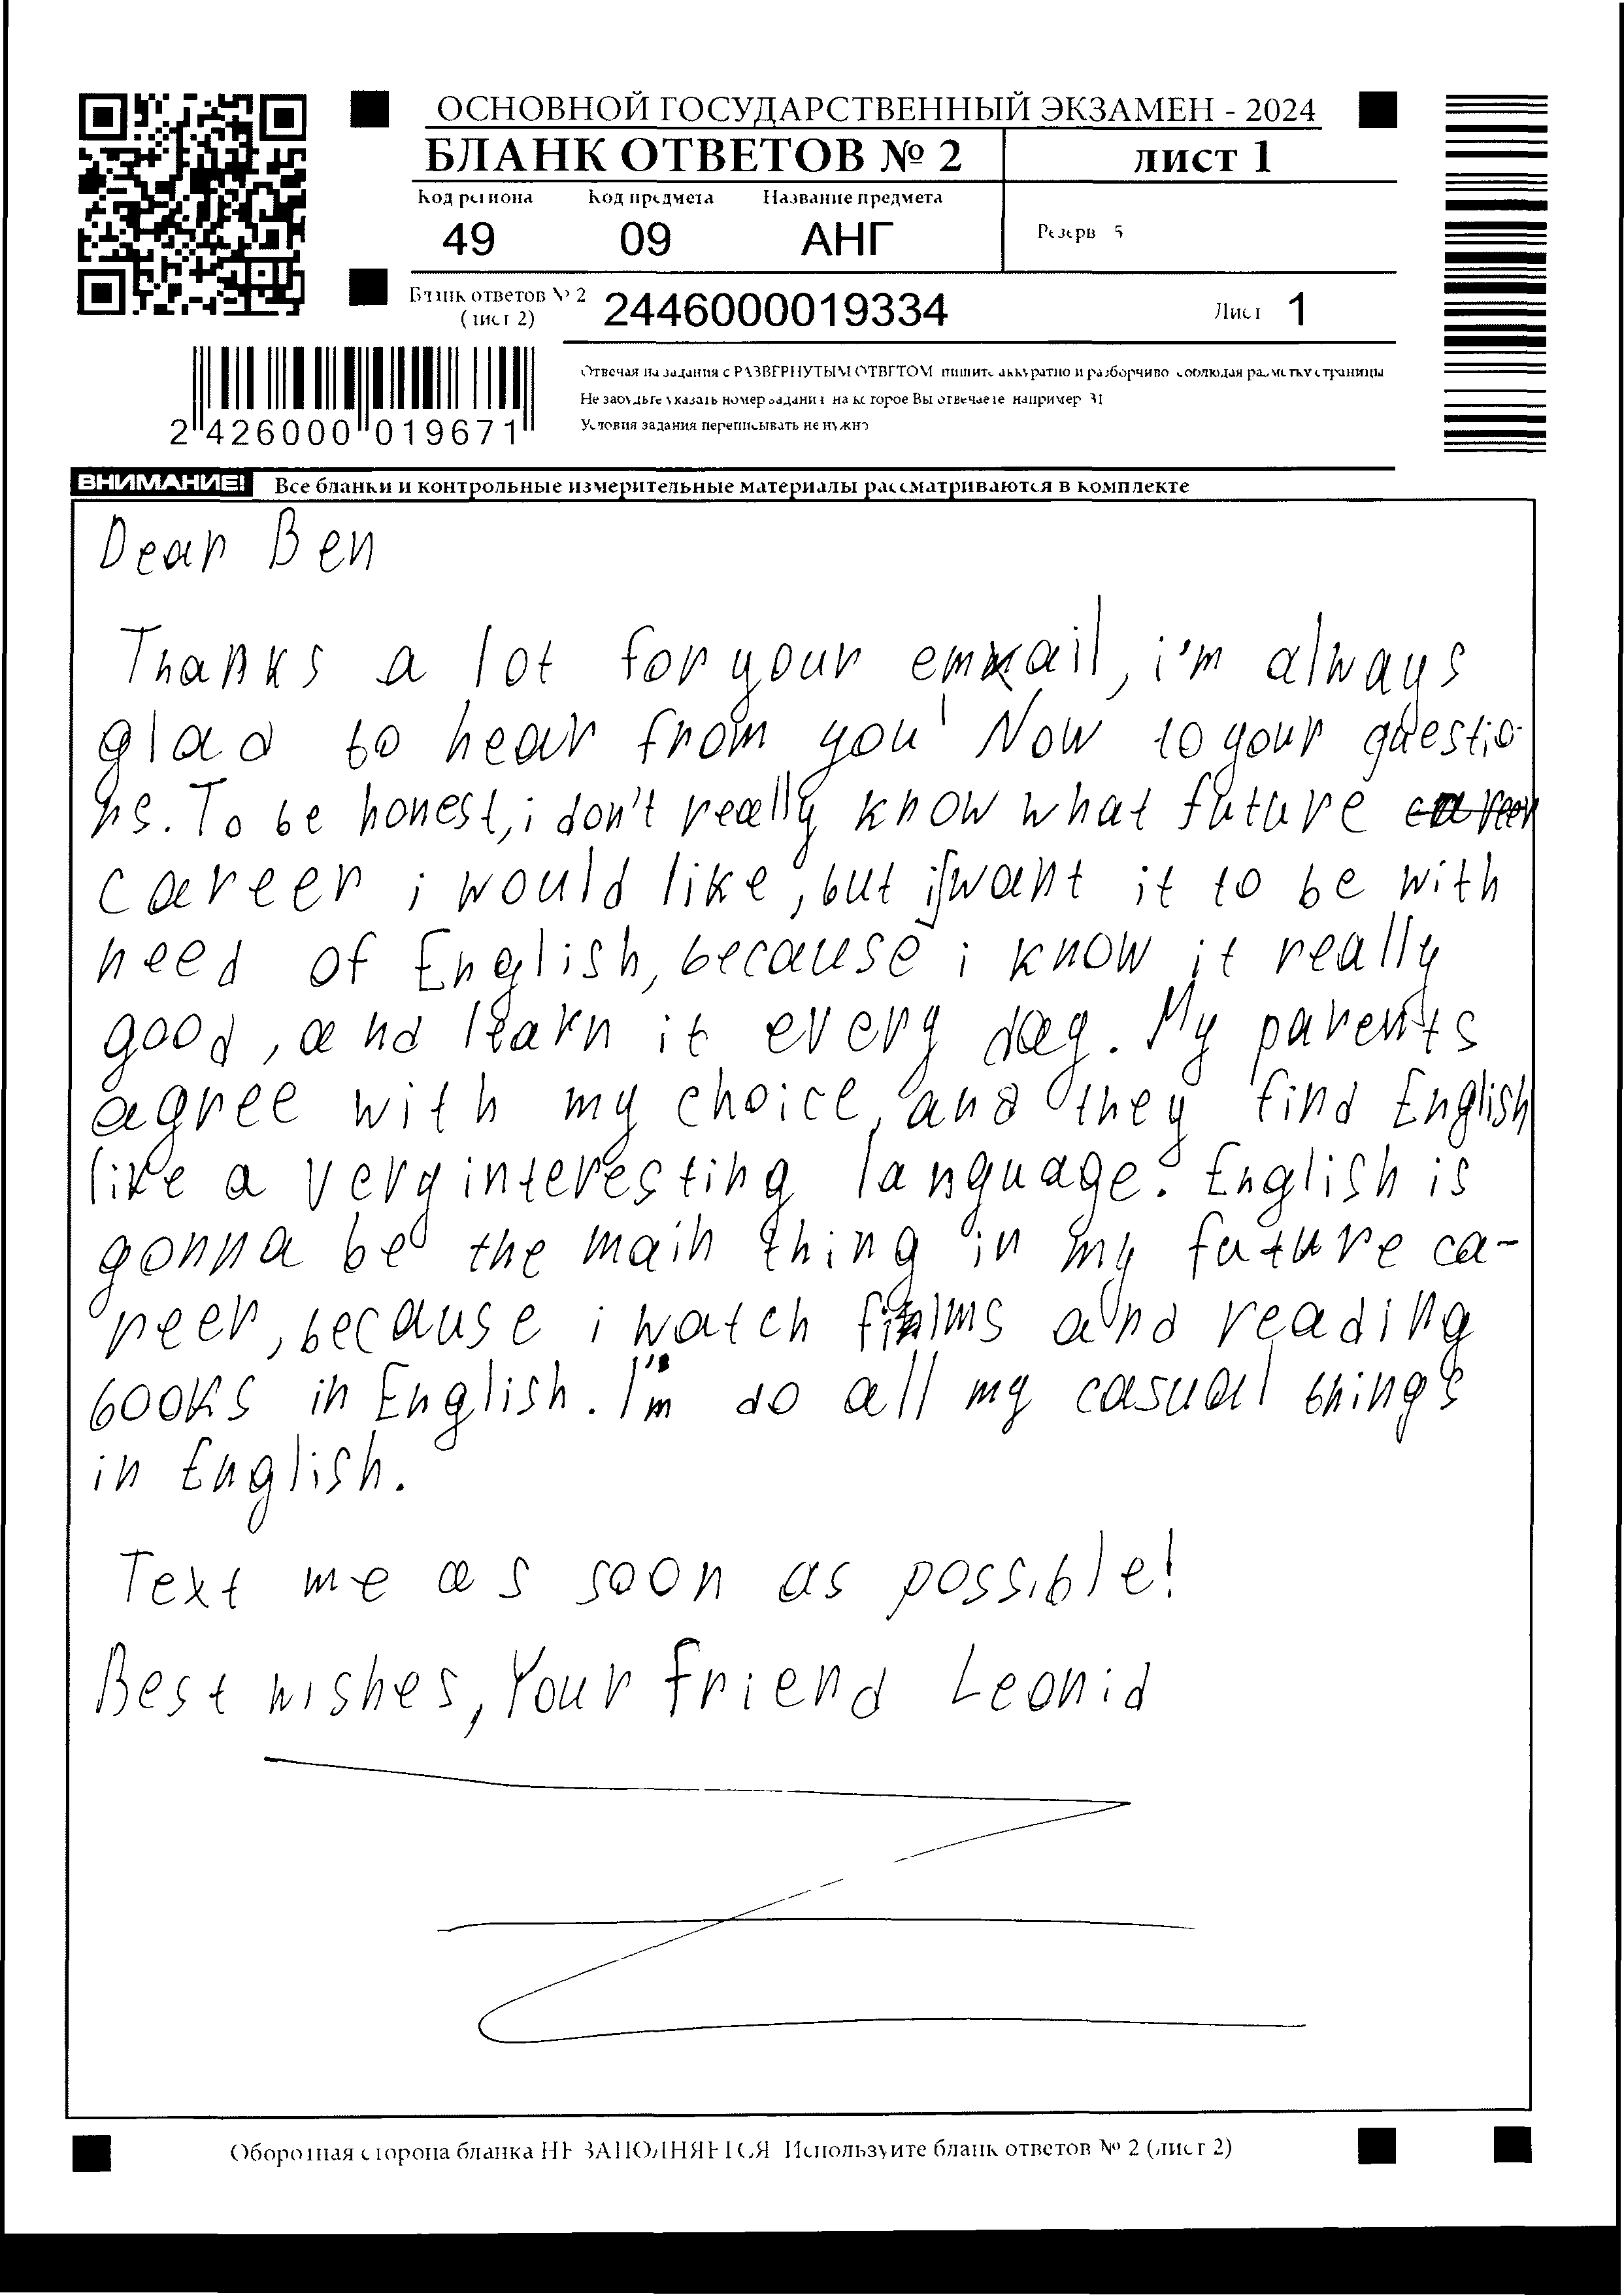 ОСНОВНОЙ ГОСУДАРСТВЕННЫЙ ЭКЗАМЕН - 2024
БЛАНК ОТВЕТОВ № 2 лист 1
Код региона Код предмета Название предмета
49 09 АНГ Резерв 5
Бланк ответов № 2
(лист 2) 2446000019334 Лист 1
Отвечая на задания с РАЗВЕРНУТЫМ ОТВЕТОМ пишите аккуратно и разборчиво соблюдая разметку страницы
Не забудьте указать номер задания на которое Вы отвечаете например 31
Условия задания переписывать не нужно
2 426000 019671
ВНИМАНИЕ! Все бланки и контрольные измерительные материалы рассматриваются в комплекте
Dear Ben
Thanks a lot for your email, i'm always
glad to hear from you! Now to your questio-
ns. To be honest, i don't really know what future career
career i would like, but i want it to be with
need of English, because i know it really
good, and learn it every day. My parents
agree with my choice, and they find English
like a very interesting language. English is
gonna be the main thing in my future ca-
reer, because i watch films and reading
books in English. I'm do all my casual things
in English.
Text me as soon as possible!
Best wishes, Your friend Leonid
Оборотная сторона бланка НЕ ЗАПОЛНЯЕТСЯ Используйте бланк ответов № 2 (лист 2)